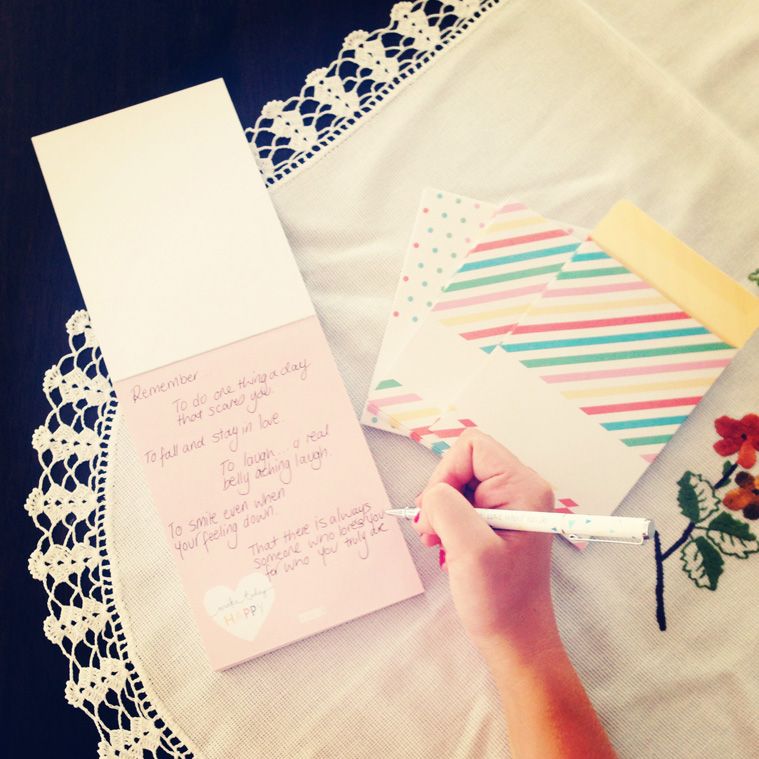 Remember...
To do one thing a day
that scares you.
To fall and stay in love..
To laugh... a real
belly aching laugh.
To smile even when
your feeling down.
That there is always
someone who loves you
for who you truly are
make today
HAPPY